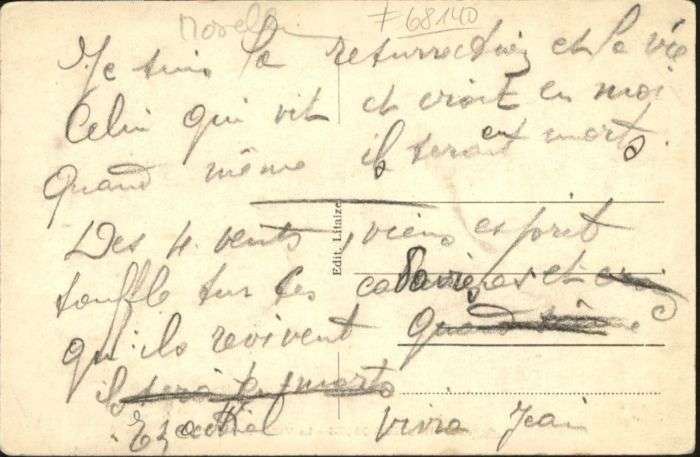 Morelle
≠ 68140
Je suis la resurrection et la vie
Celui qui vit et croit en moi
Quand même ils seraient morts.
ent
Des 4 vents, viens esprit
souffle sur ces cadavres et
qu'ils revivent Quand même
ils
Ezechiel vivra Jean
Edit. Litaize